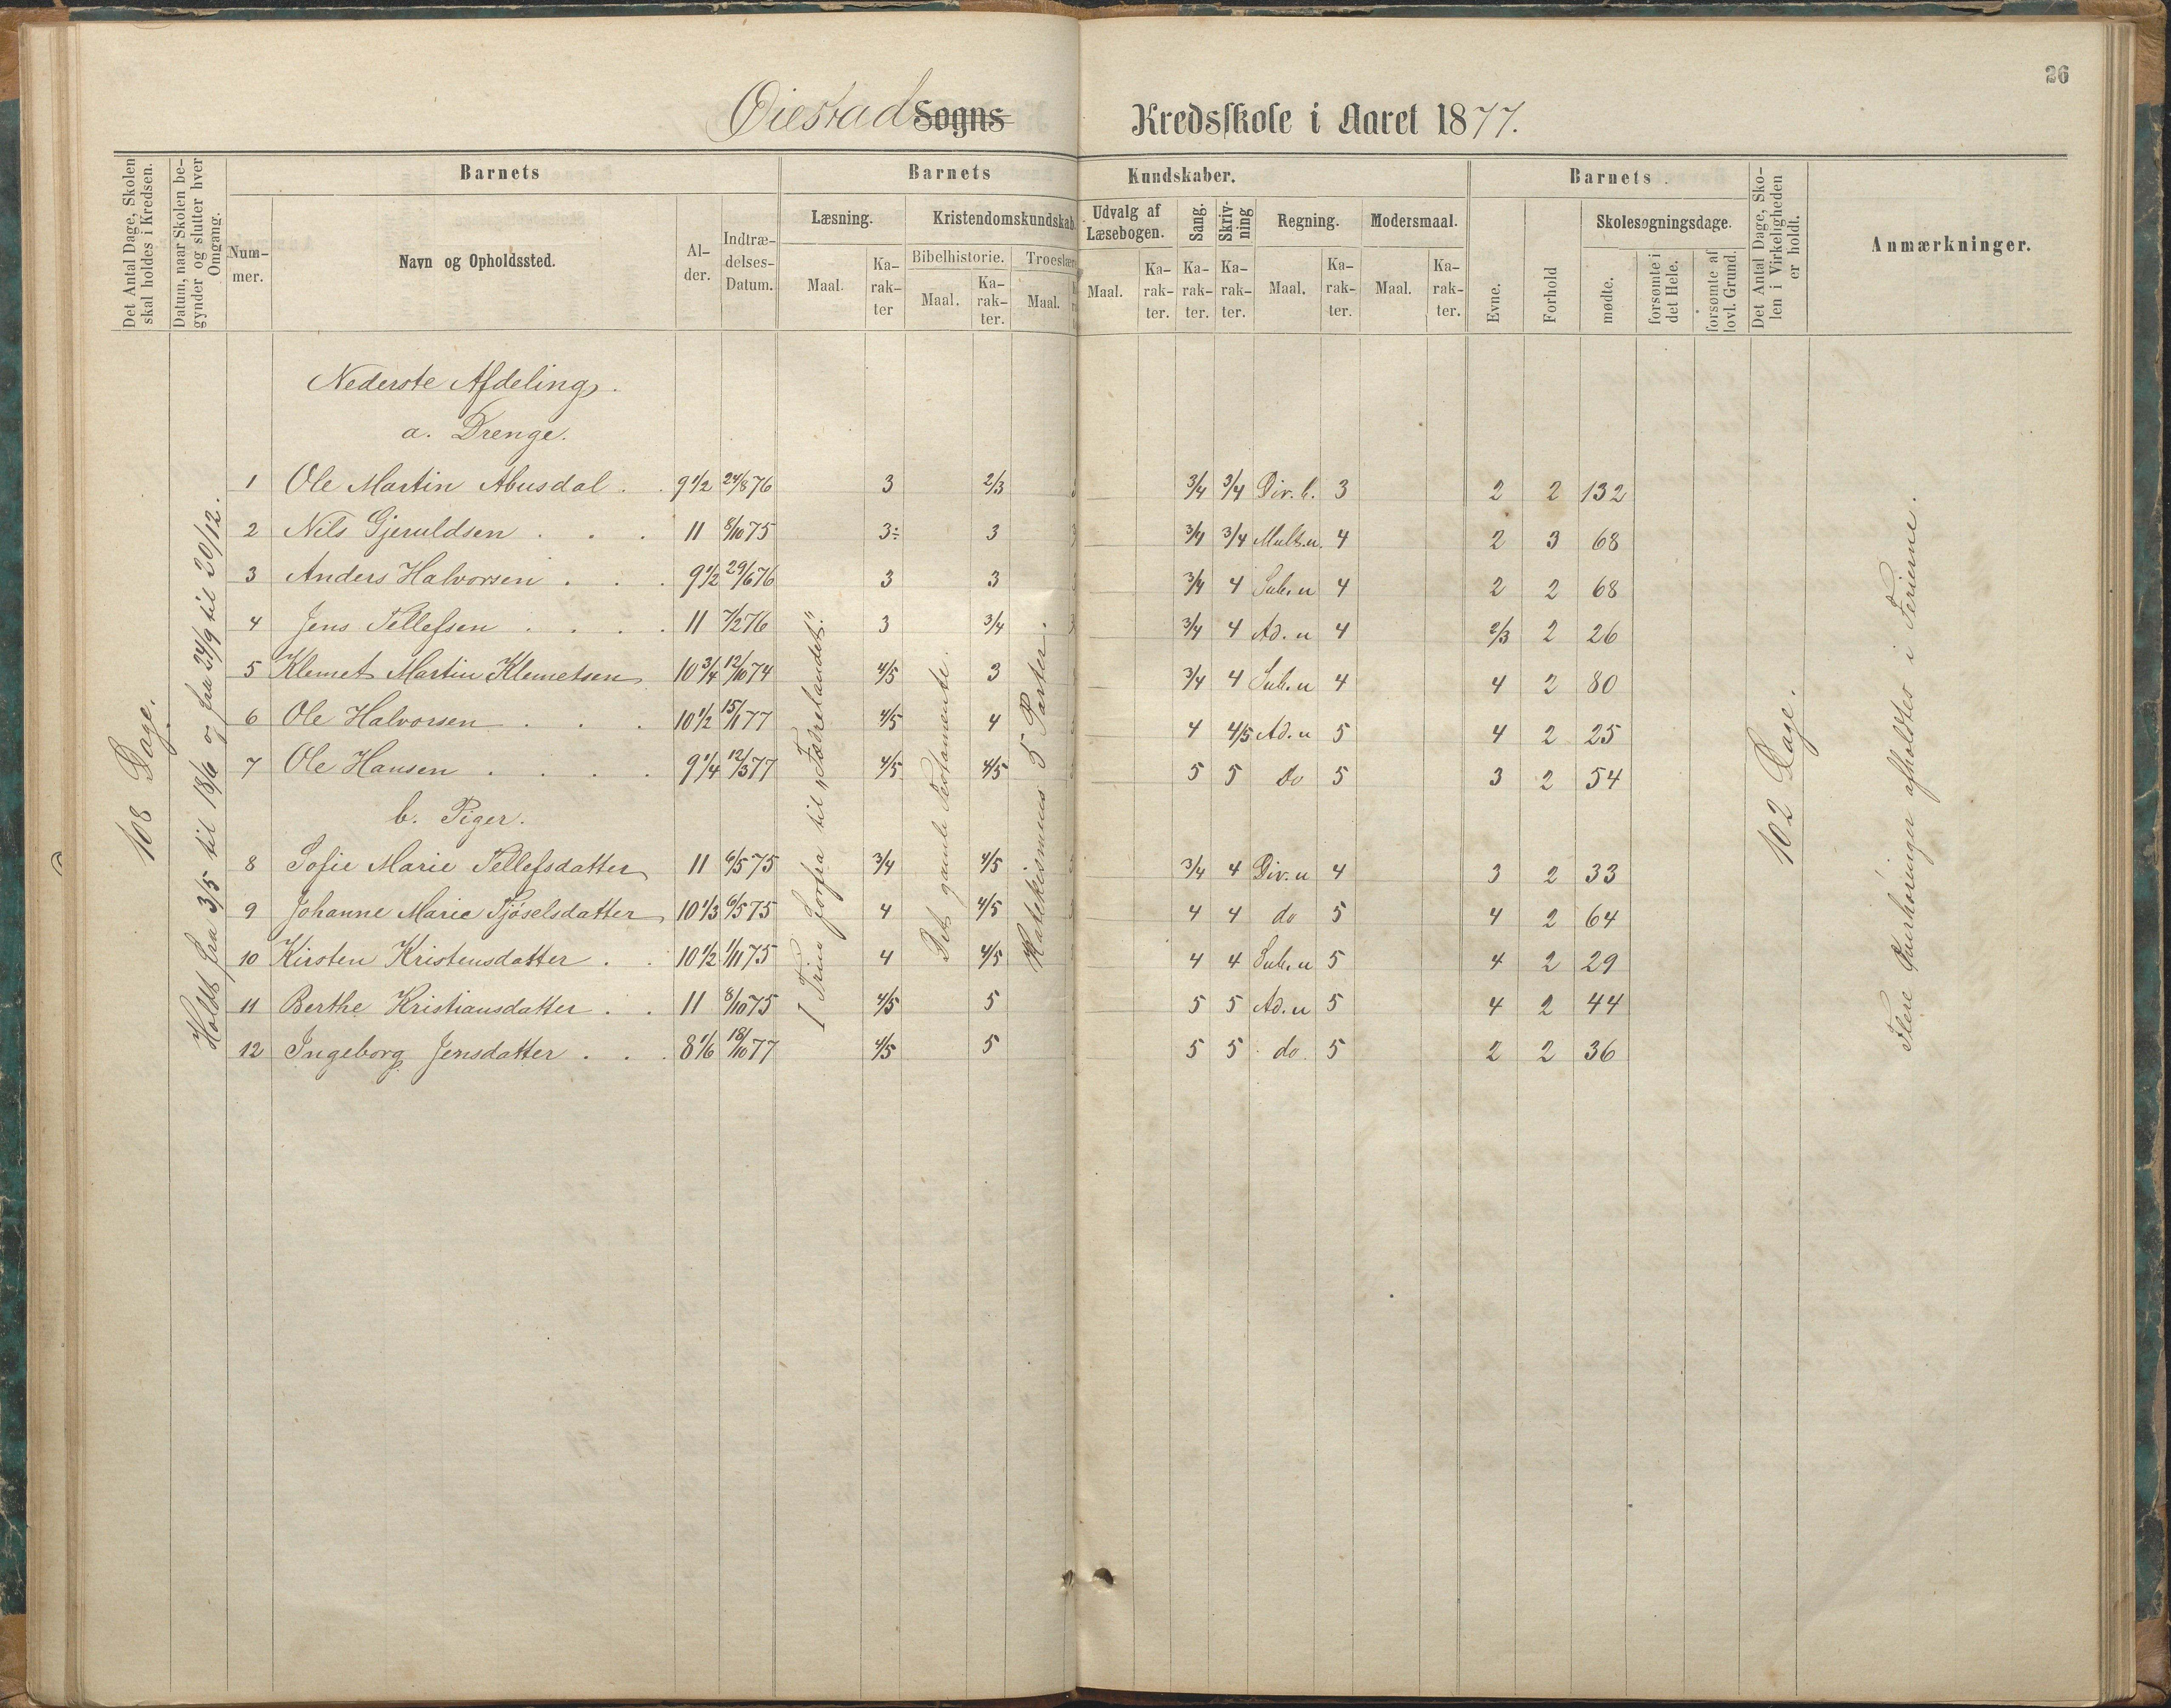 26
Øiestad Sogns Kredsskole i Aaret 1877.
Det Antal Dage, Skolen skal holdes i Kredsen.
Datum, naar Skolen begynder og slutter hver Omgang.
Barnets
Barnets Kundskaber.
Barnets
Det Antal Dage, Skolen i Virkeligheden er holdt.
Anmærkninger.
Nummer.
Navn og Opholdssted.
Alder.
Indtrædelses-Datum.
Læsning.
Kristendomskundskab.
Udvalg af Læsebogen.
Sang.
Skrivning
Regning.
Modersmaal.
Evne.
Forhold
Skolesøgningsdage.
Bibelhistorie.
Troeslære
Maal.
Karakter
Maal.
Karakter.
Maal.
Maal.
Karakter.
Karakter.
Karakter.
Maal.
Karakter.
Maal.
Karakter.
mødte.
forsømte i det Hele.
forsømte af lovl. Grund.
108 Dage.
Holdt fra 3/5 til 18/6 og fra 24/9 til 20/12.
Nederste Afdeling.
a. Drenge.
1 Ole Martin Abusdal . . 9 1/2 24/8 76 3 2/3 3/4 3/4 Div. b. 3 2 2 132
2 Nils Gjeruldsen . . . 11 8/10 75 3÷ 3 3/4 3/4 Mult. u. 4 2 3 68
3 Anders Halvorsen . . . 9 1/2 29/6 76 3 3 3/4 4 Sub. u 4 2 2 68
4 Jens Tellefsen . . . . 11 7/2 76 3 3/4 3/4 4 Ad. u 4 2/3 2 26
5 Klemet Martin Klemetsen 10 3/4 12/10 74 4/5 3 3/4 4 Sub. u 4 4 2 80
6 Ole Halvorsen . . . 10 1/2 15/1 77 4/5 4 4 4/5 Ad. u 5 4 2 25
7 Ole Hansen . . . . 9 1/4 12/3 77 4/5 4/5 5 5 Do 5 3 2 54
b. Piger.
8 Sofie Marie Tellefsdatter 11 6/5 75 3/4 4/5 3/4 4 Div. u 4 3 2 33
9 Johanne Marie Tjöselsdatter 10 1/3 6/5 75 4 4/5 4 4 do 5 4 2 64
10 Kirsten Kristensdatter . . 10 1/2 1/11 75 4 4/5 4 4 Sub. u 5 4 2 29
11 Berthe Kristiansdatter . . 11 8/10 75 4/5 5 5 5 Ad. u 5 4 2 44
12 Ingeborg Jensdatter . . . 8 1/6 18/10 77 4/5 5 5 5 do. 5 2 2 36
I Trin forfra til "Fædrelandet."
Det gamle Testamente.
Katekismens 5 Parter.
102 Dage.
Flere Overhøringer afholdtes i Ferierne.